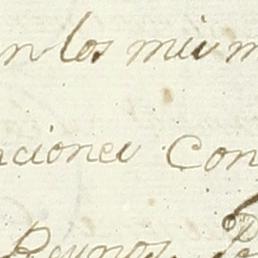 n los mis m
aciones Con
Reynos. De